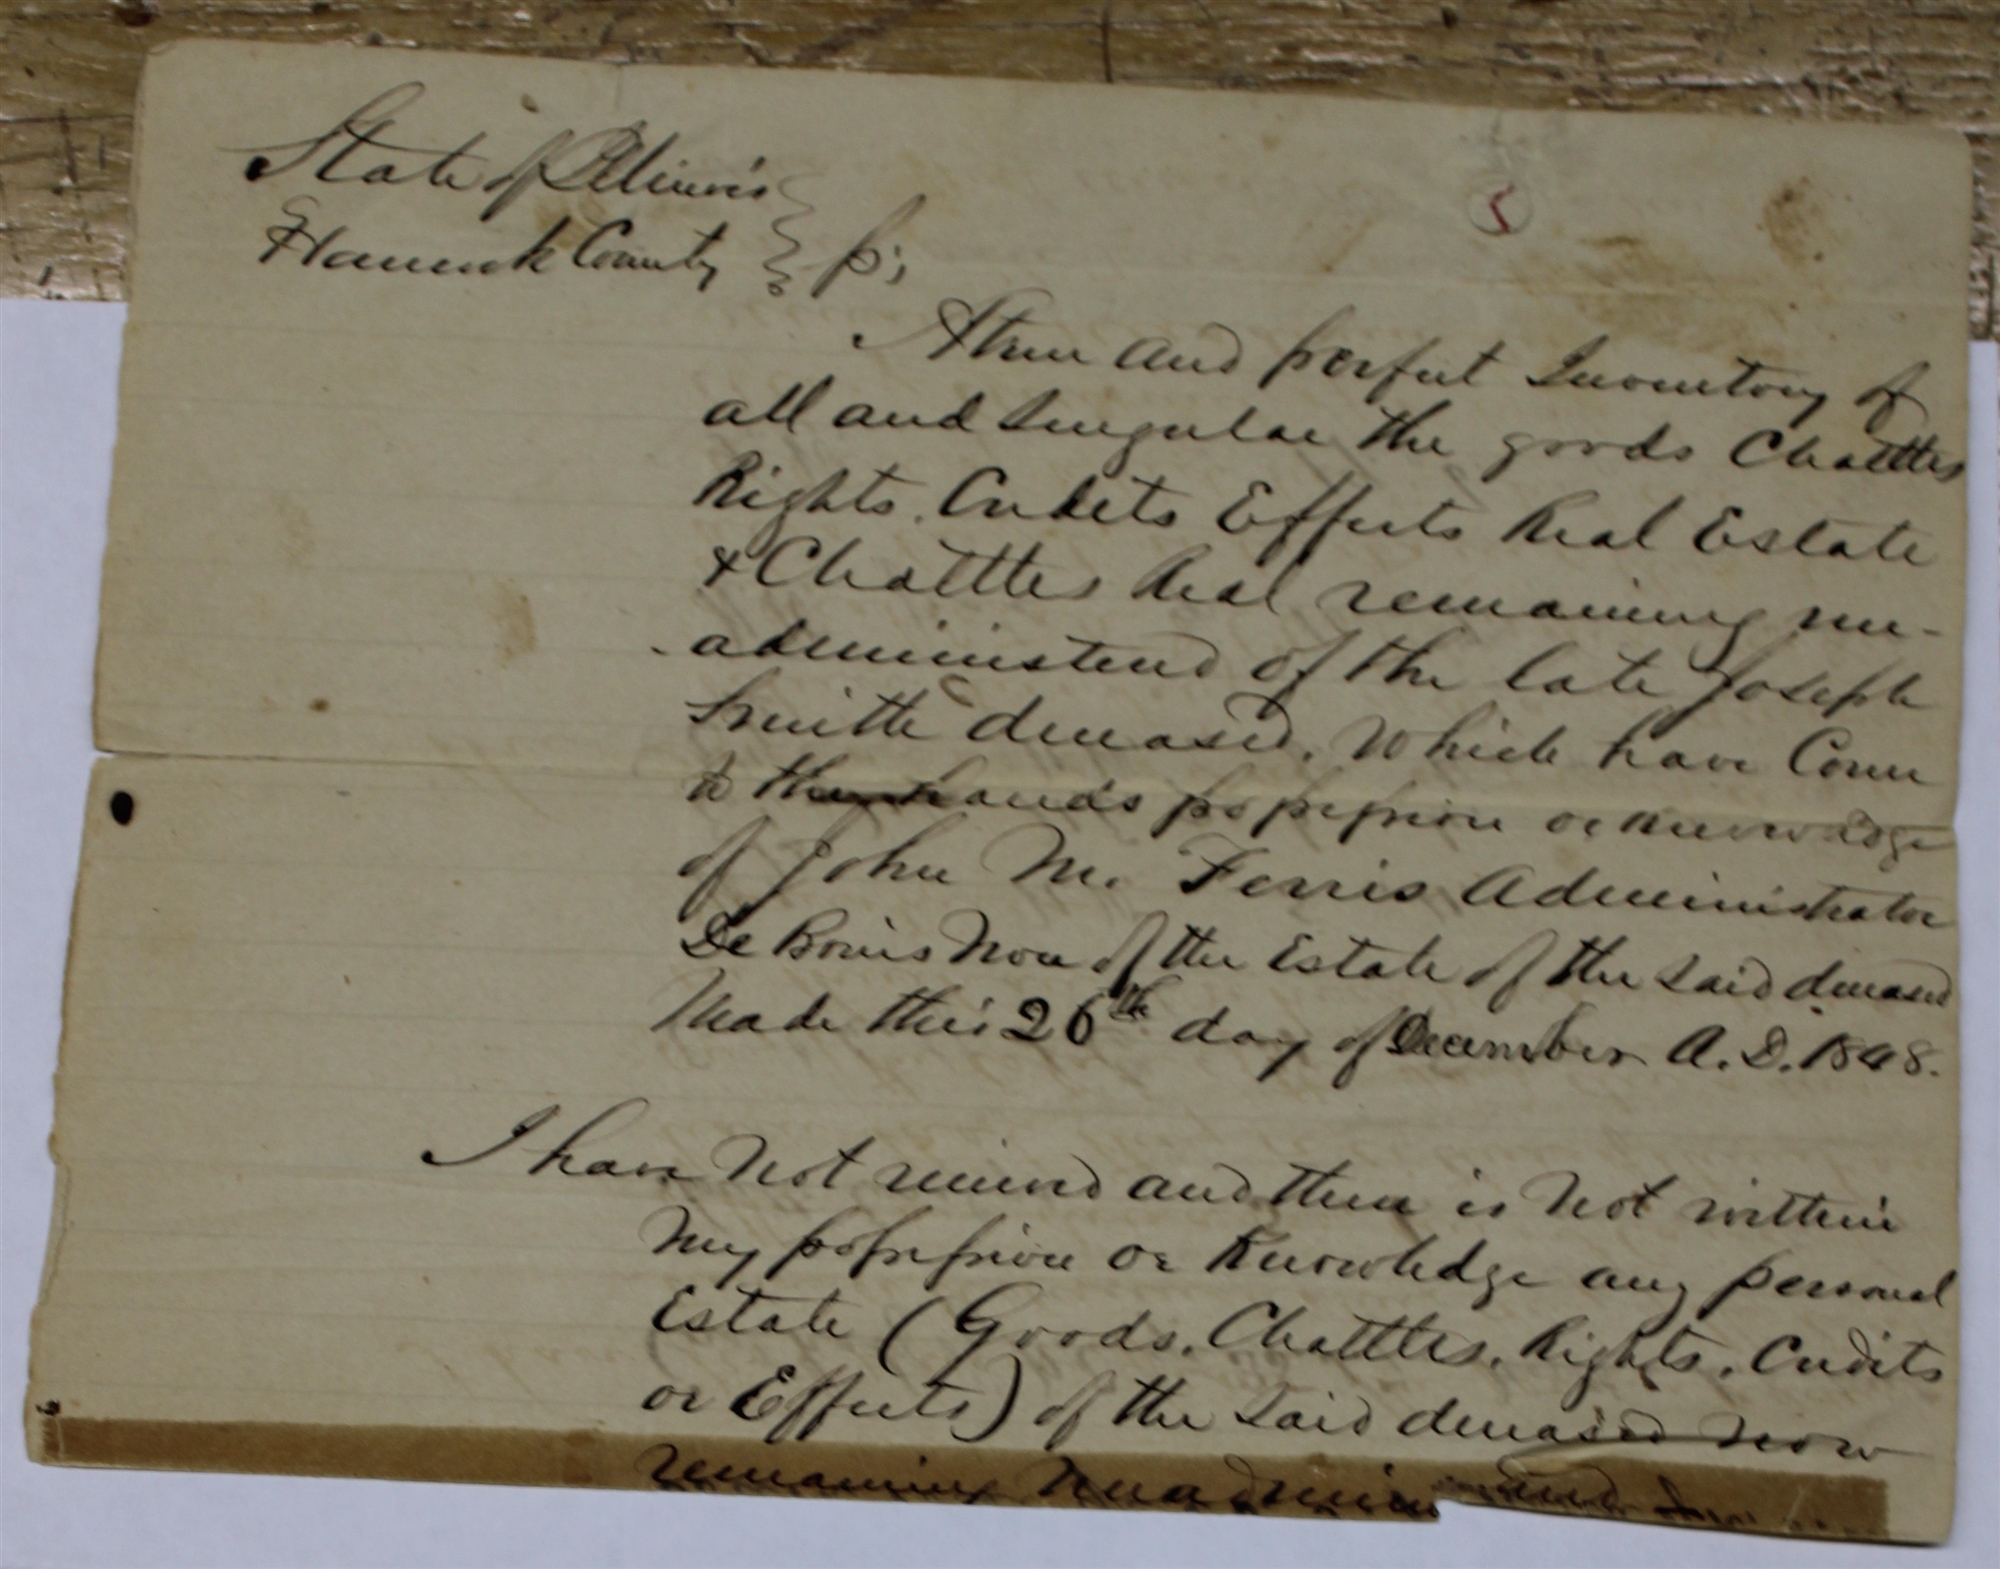 State of Illinois
Hancock County } ss;
5
A true and perfect Inventory of
all and singular the goods Chattles
Rights. Credits Effects Real Estate
& Chattles Real remaining un-
administered of the late Joseph
Smith deceased. Which have Come
to the hands possession or knowledge
of John M. Ferris Administrator
De Bonis Non of the Estate of the said deceased
Made this 26th day of December A. D. 1848.
I have Not received and there is Not within
My possession or Knowledge any personal
Estate (Goods. Chattles. Rights. Credits
or Effects) of the said deceased now
remaining